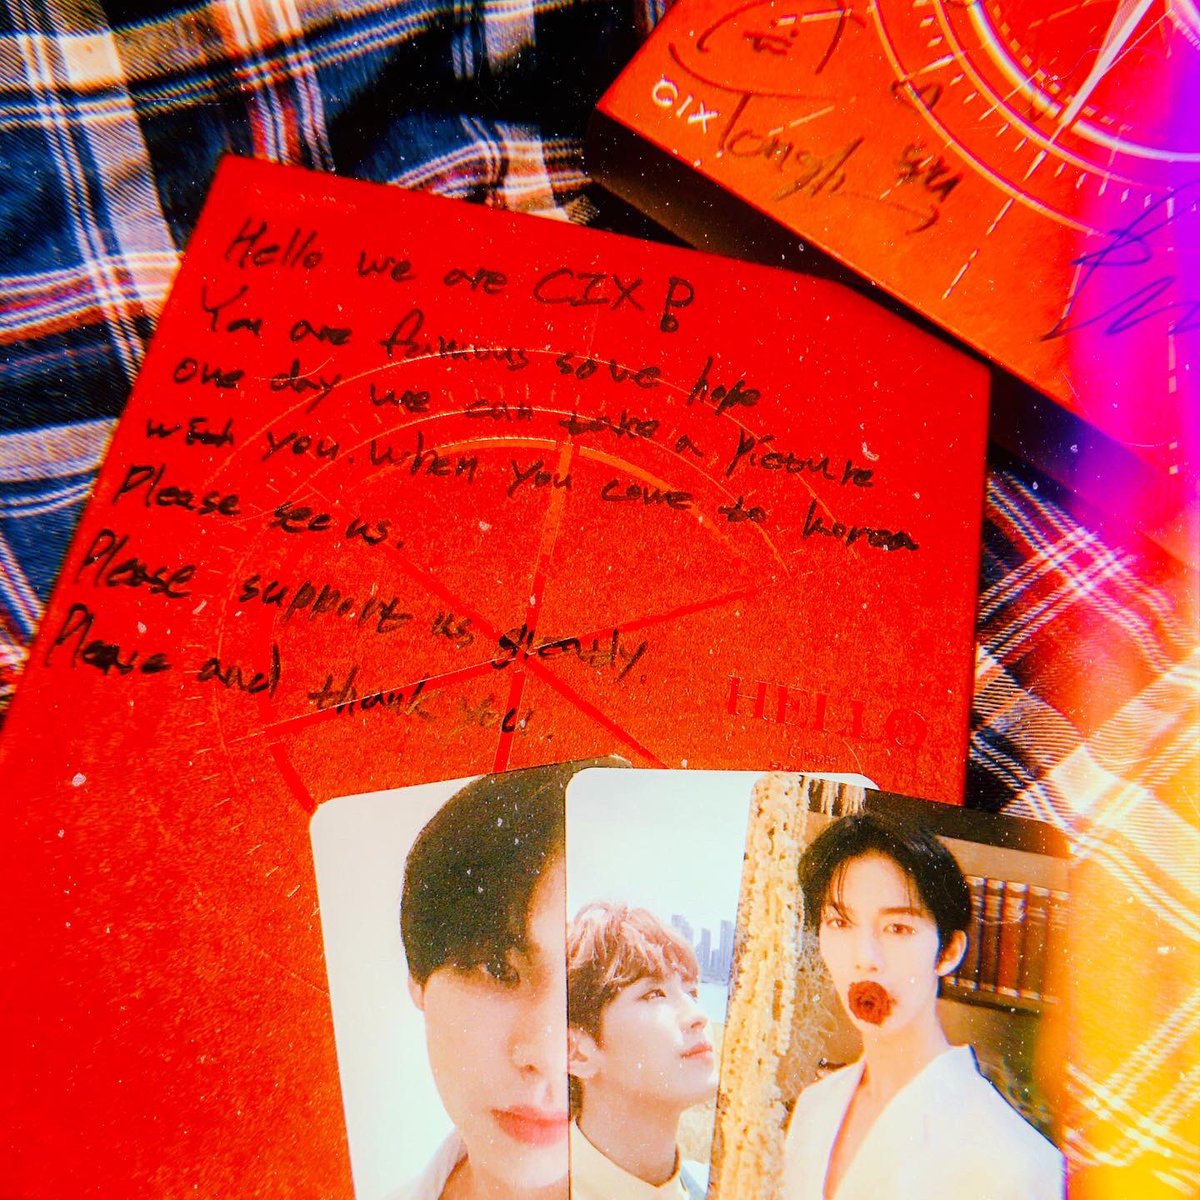 CIX
Hello we are CIX!
You are famous so we hope
one day we can take a picture
with you. When you come to korea
Please see us.
Please support us greatly.
Please and thank you.
HELLO